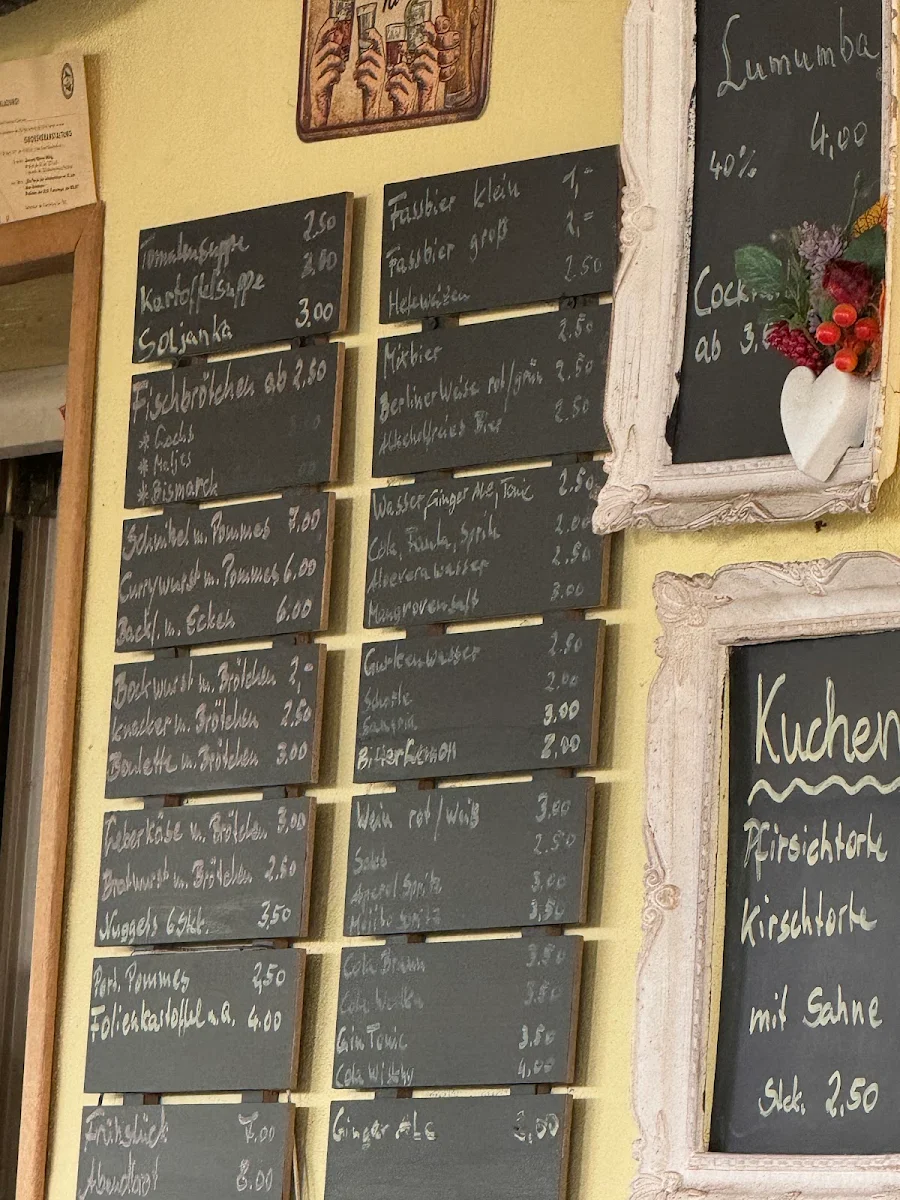 Tomatensuppe 2.50
Kartoffelsuppe
Soljanka 3.00
Fischbrötchen ab 2.50
* Lachs
* Matjes
* Bismarck
Schnitzel m. Pommes 7.00
Currywurst m. Pommes 6.00
Backf. m. Ecken 6.00
Bockwurst m. Brötchen 2,-
Knacker m. Brötchen 2.50
Boulette m. Brötchen 3.00
Leberkäse m. Brötchen 3.00
Bratwurst m. Brötchen 2.50
Nuggets 6 Stk. 3,50
Port. Pommes 2,50
Folienkartoffel 4.00
Frühstück 7.00
Abendbrot 8.00
Fassbier klein 1,-
Fassbier groß 2,-
Hefeweizen 2.50
Mixbier 2.50
Berliner Weise rot/grün 2.50
Alkoholfreies Bier 2.50
Wasser, Ginger Ale, Tonic 2.50
Cola, Fanta, Sprite 2.00
Aloevera Wasser 2.50
Mangrovensaft 3.00
Gurkenwasser 2.50
Schorle 2.00
3.00
Bitter Lemon 2.00
Wein rot/weiß 3.00
Sekt 2.50
Aperol Spritz 3,00
Mojito Spritz 3,50
Cola Braun 3.50
Cola Wodka 3.50
Gin Tonic 3.50
Cola Wisky 4,00
Ginger Ale 2,00
Lumumba
4.00
40%
ab 3,
Kuchen
Pfirsichtorte
Kirschtorte
mit Sahne
Stck. 2,50